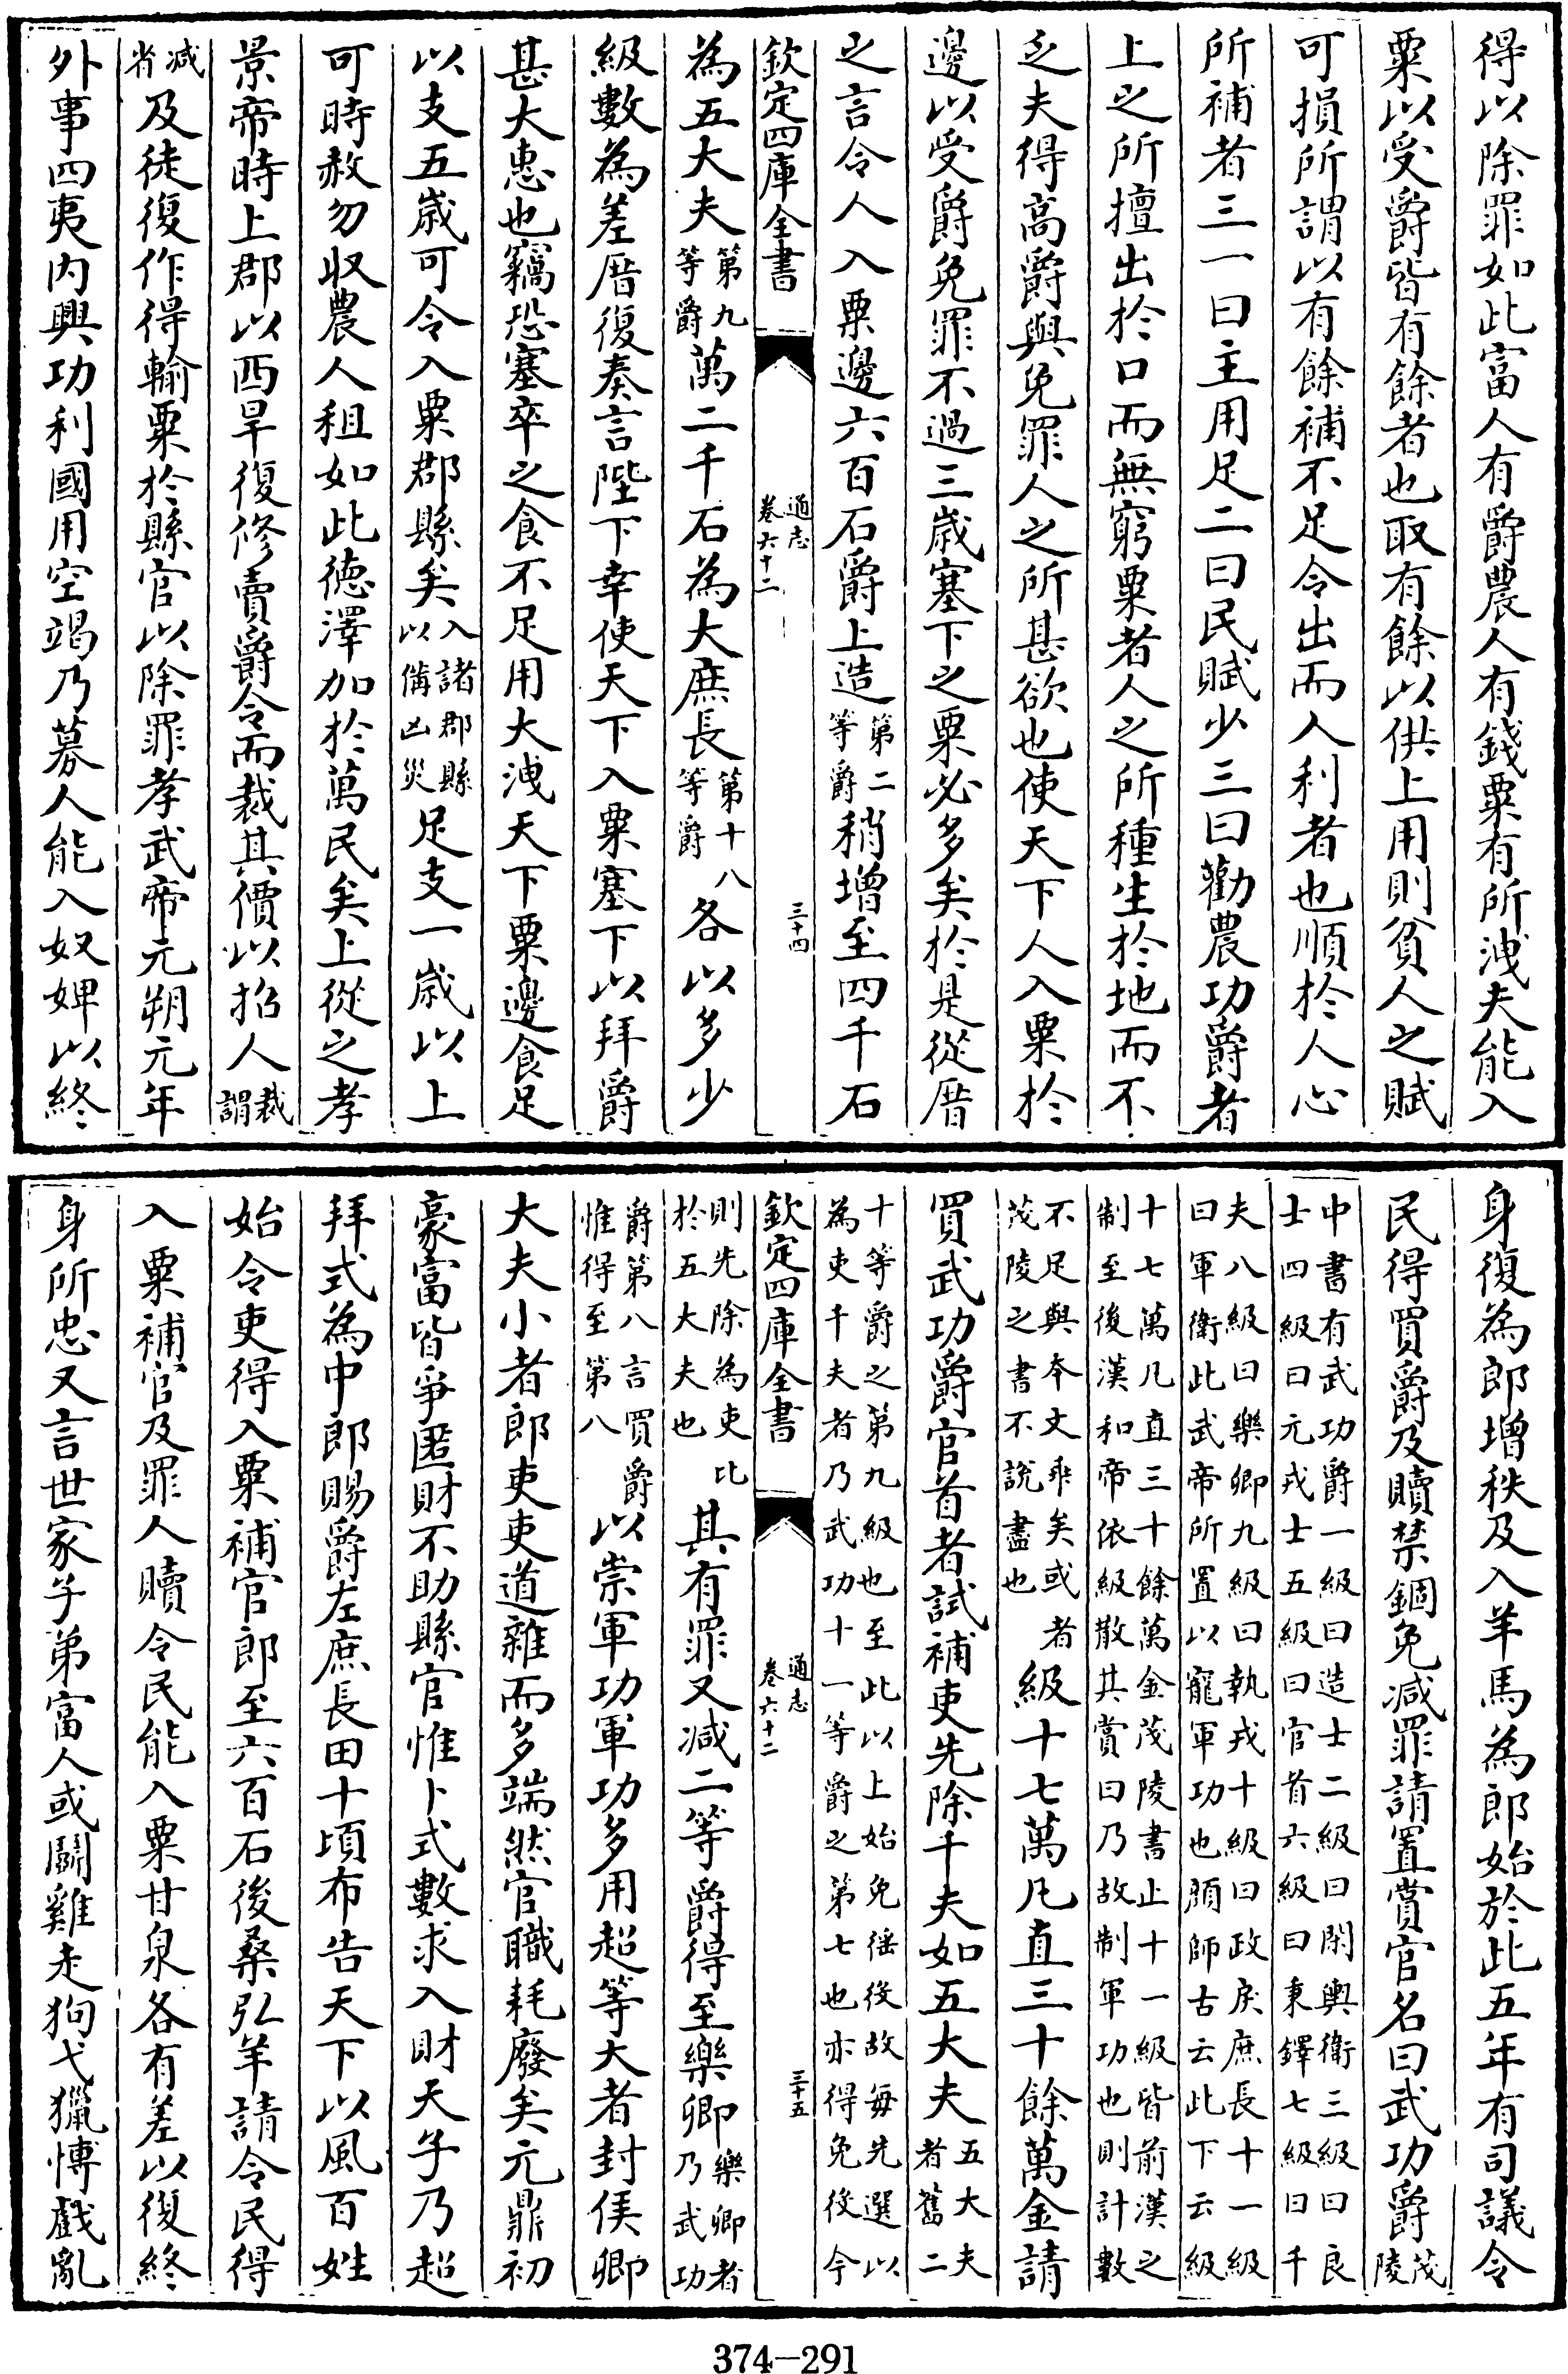 得以除罪如此富人有爵農人有錢粟有所洩夫能入
粟以受爵皆有餘者也取有餘以供上用則貧人之賦
可損所謂以有餘補不足令出而人利者也順於人心
所補者三一曰主用足二曰民賦少三曰勸農功爵者
上之所擅出於口而無窮粟者人之所種生於地而不
乏夫得高爵與免罪人之所甚欲也使天下人入粟於
邊以受爵免罪不過三歲塞下之粟必多矣於是從厝
之言令人入粟邊六百石爵上造第二等爵稍增至四千石
欽定四庫全書 通志卷六十二 三十四
為五大夫第九等爵萬二千石為大庶長第十八等爵各以多少
級數為差厝復奏言陛下幸使天下入粟塞下以拜爵
甚大惠也竊恐塞卒之食不足用大洩天下粟邊食足
以支五歲可令入粟郡縣矣入諸郡縣以備凶災足支一歲以上
可時赦勿收農人租如此德澤加於萬民矣上從之孝
景帝時上郡以西旱復修賣爵令而裁其價以招人裁謂
減省及徒復作得輸粟於縣官以除罪孝武帝元朔元年
外事四夷内興功利國用空竭乃募人能入奴婢以終
身復為郎增秩及入羊馬為郎始於此五年有司議令
民得買爵及贖禁錮免減罪請置賞官名曰武功爵茂陵
中書有武功爵一級曰造士二級曰閑輿衛三級曰良
士四級曰元戎士五級曰官首六級曰秉鐸七級曰千
夫八級曰樂卿九級曰執戎十級曰政戾庶長十一級
曰軍衛此武帝所置以寵軍功也顔師古云此下云級
十七萬凡直三十餘萬金茂陵書止十一級皆前漢之
制至後漢和帝依級散其賞曰乃故制軍功也則計數
不足與本文乖矣或者
茂陵之書不說盡也
級十七萬凡直三十餘萬金請
買武功爵官首者試補吏先除千夫如五大夫五大夫者舊二
十等爵之第九級也至此以上始免徭役故每先選以
為吏千夫者乃武功十一等爵之第七也亦得免役今
欽定四庫全書 通志卷六十二 三十五
則先除為吏比
於五大夫也
其有罪又減二等爵得至樂卿樂卿者乃武功
爵第八言買爵
惟得至第八
以崇軍功軍功多用超等大者封侯卿
大夫小者郎吏吏道雜而多端然官職耗廢矣元鼎初
豪富皆爭匿財不助縣官惟卜式數求入財天子乃超
拜式為中郎賜爵左庶長田十頃布告天下以風百姓
始令吏得入粟補官郎至六百石後桑弘羊請令民得
入粟補官及罪人贖令民能入粟甘泉各有差以復終
身所忠又言世家子弟富人或鬬雞走狗弋獵愽戲亂
374-291